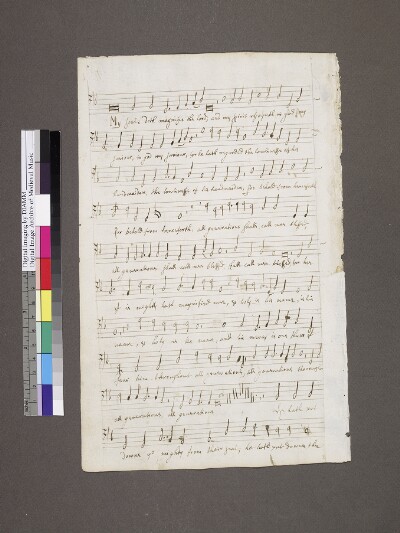 My soule doth magnifie the lord, and my spirit rejoyceth in god my
saviour, in god my saviour, for he hath regarded the lowlinesse of his
handmaiden, the lowlinesse of his handmaiden, for behold from henceforth
for behold from henceforth, all generations shall call mee blessed
all generations shall call mee blessed shall call mee blessed for hee
yt is mighty hath magnified mee, & holy is his name, & his
name, & holy is his name, and his mercy is on them yt
feare him throughout all generations, all generations throughout
all generations, all generations hee hath put
downe ye mighty from their seat, hee hath put downe the
Digital Imaging by DIAMM
Digital Image Archive of Medieval Music